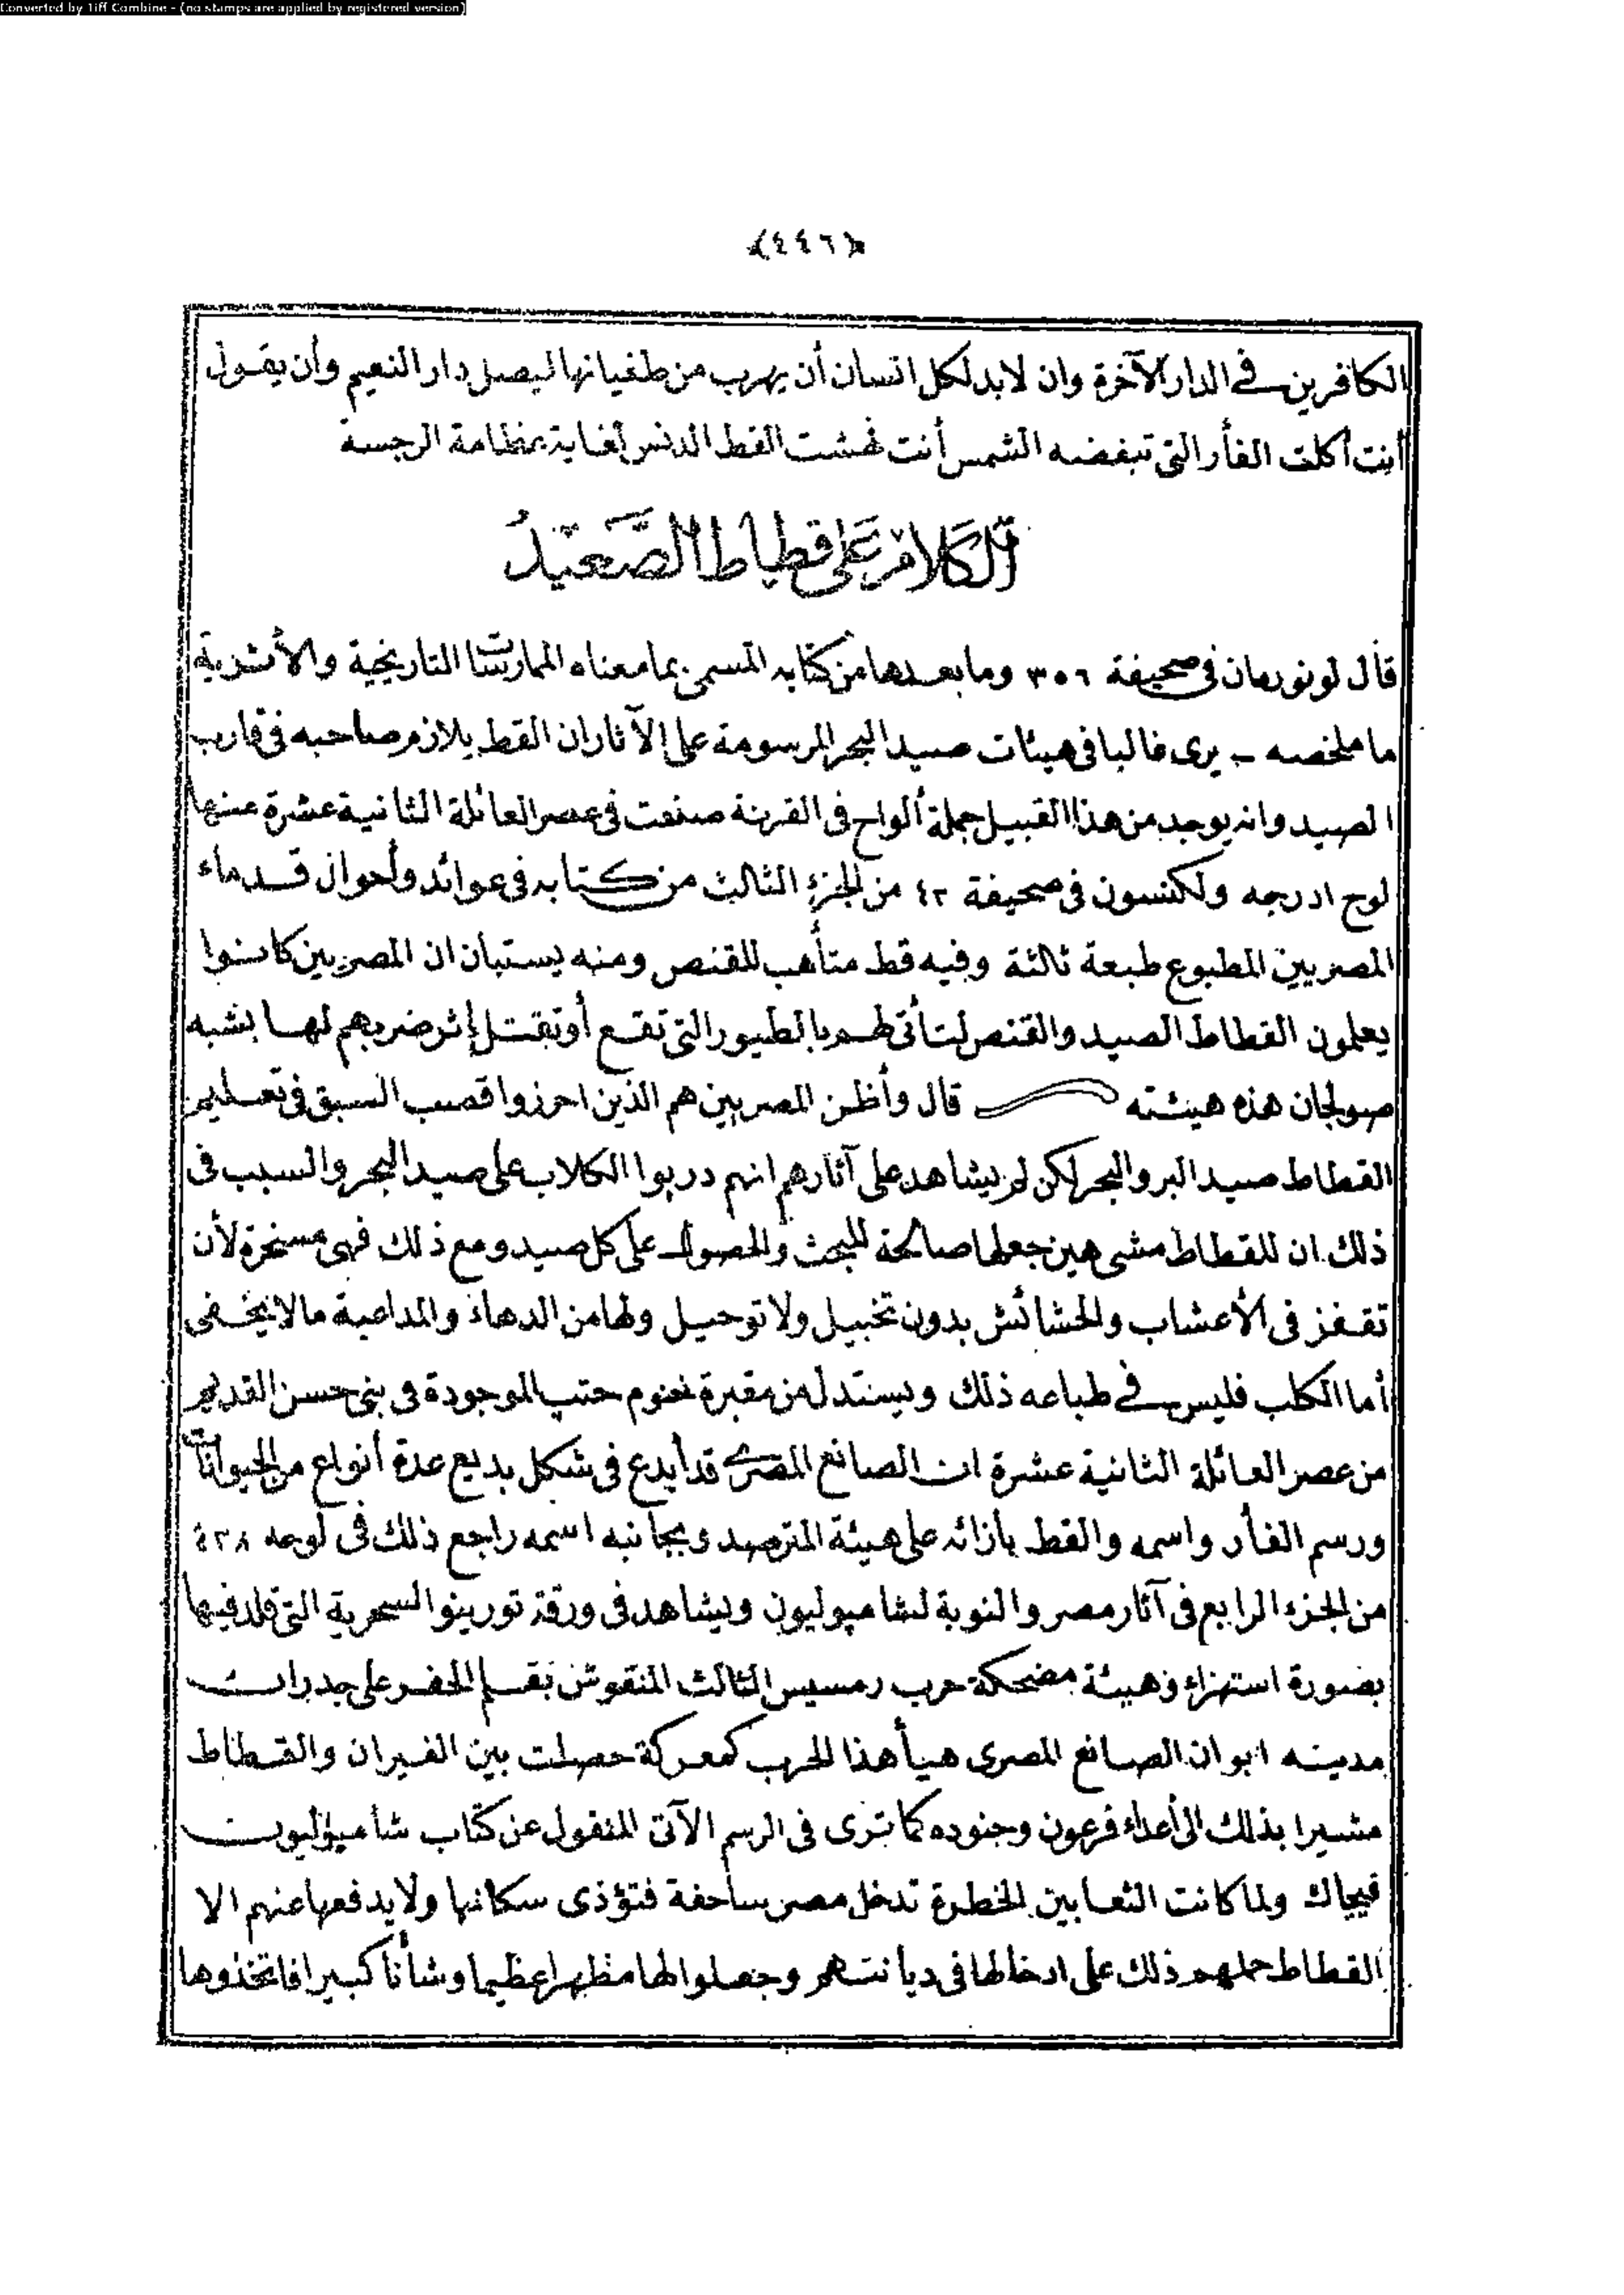 Converted by Tiff Combine - (no stamps are applied by registered version)
﴿٤٤٦﴾
الكافرين في الدار الآخرة وان لابد لكل انسان أن يهرب من طغيانها ليصل دار النعيم وأن يقول
أنت أكلت الفأر التى تبغضه الشمس أنت نهشت القط الدنس لغاية بمظامة الرجسة
الكلام على قطاط الصعيد
قال لونورمان فى صحيفة ٣٥٦ وما بعدها من كتابه المسمى بما معناه الممارستا التاريخية والأثرية
ما ملخصه - يرى غالبا فى هيئات صيد البحر المرسومة على الآثار ان القط يلازم صاحبه فى قارب
الصيد وانه يوجد من هذا القبيل جملة ألواح فى القرنة صنعت فى عصر العائلة الثانية عشرة منها
لوح ادرجه ولكنسون فى صحيفة ٤٢ من الجزء الثالث من كتابه فى عوائد وأحوال قدماء
المصريين المطبوع طبعة ثالثة وفيه قط متأهب للقنص ومنه يستبان ان المصريين كانوا
يعلمون القطاط الصيد والقنص لتأتى لهم بالطيور التى تقع أو تقتل إثر ضربهم لها بشبه
صولجان هذه هيئته قال وأظن المصريين هم الذين احرزوا قصب السبق فى تعليم
القطاط صيد البر والبحر لكن لم يشاهد على آثارهم انهم دربوا الكلاب على صيد البحر والسبب فى
ذلك ان للقطاط مشى هين جعلها صالحة للبحث والحصول على كل صيد ومع ذلك فهى مسخرة لأن
تقفز فى الأعشاب والحشائش بدون تخبيل ولا توحيل ولها من الدهاء والمداعبة مالا يخفى
أما الكلب فليس في طباعه ذلك ويستدل من مقبرة نخنوم حتب الموجودة فى بنى حسن القديم
من عصر العائلة الثانية عشرة ان الصانع المصرى قد أبدع فى شكل بديع عدة أنواع من الحيوانات
ورسم الفأر واسمه والقط بأزائه على هيئة المترصد وبجانبه اسمه راجع ذلك فى لوحه ٤٢٨
من الجزء الرابع فى آثار مصر والنوبة لشامبوليون ويشاهد فى ورقة تورينو السحرية التى قلد فيها
بصورة استهزاء وهيئة مضحكة حرب رمسيس الثالث المنقوش بقلم الحفر على جدران
مدينه ابو ان الصانع المصرى هيأ هذا الحرب كمعركة حصلت بين الفيران والقطاط
مشيرا بذلك الى أعداء فرعون وجنوده كما ترى فى الرسم الآتى المنقول عن كتاب شامبوليون
فيجاك ولما كانت الثعابين الخطرة تدخل مصر ساحفة فتؤذى سكانها ولا يدفعها عنهم الا
القطاط حملهم ذلك على ادخالها فى ديانتهم وجعلوا لها مظهرا عظيما وشأنا كبيرا فاتخذوها